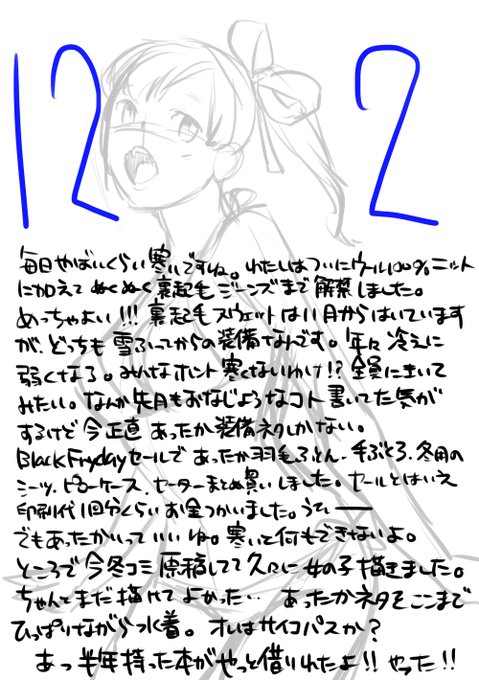 12 2
毎日やばいくらい寒いですね。わたしはついにウール100%ニット
に加えて ぬくぬく裏起毛ジーンズまで解禁しました。
めっちゃよい!!! 裏起毛スウェットは11月からはいています
が、どっちも雪ふってからの装備なみです。年々冷えに
弱くなる。みんなホント寒くないわけ!? 全員にきいて
みたい。なんか先月もおなじようなコト書いてた気が
するけど今正直あったか装備ネタしかない。
BlackFrydayセールであったか羽毛ふとん、手ぶくろ、冬用の
シーツ、ピローケース、セーターまとめ買いしました。セールとはいえ
印刷代1回分くらいお金つかいました。うてぃー
でもあったかいっていいね。寒いと何もできないよ。
ところで今冬コミ原稿してて久々に女の子描きました。
ちゃんとまだ描けてよかった… あったかネタをここまで
ひっぱりながら水着。オレはサイコパスか?
あっ半年待った本がやっと借りれたよ!! やった!!